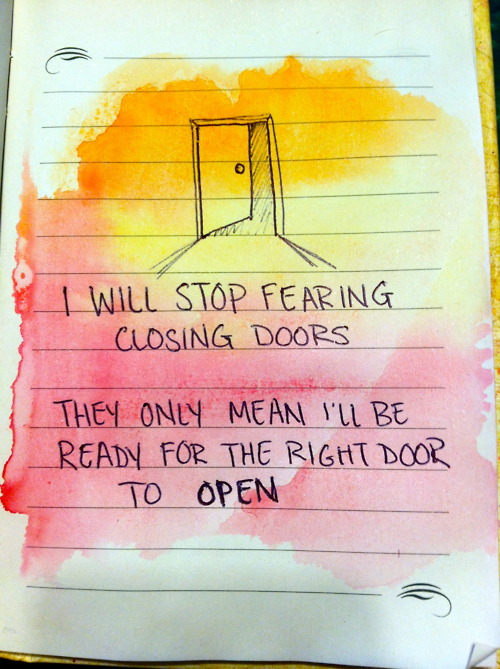 I WILL STOP FEARING
CLOSING DOORS
THEY ONLY MEAN I'LL BE
READY FOR THE RIGHT DOOR
TO OPEN